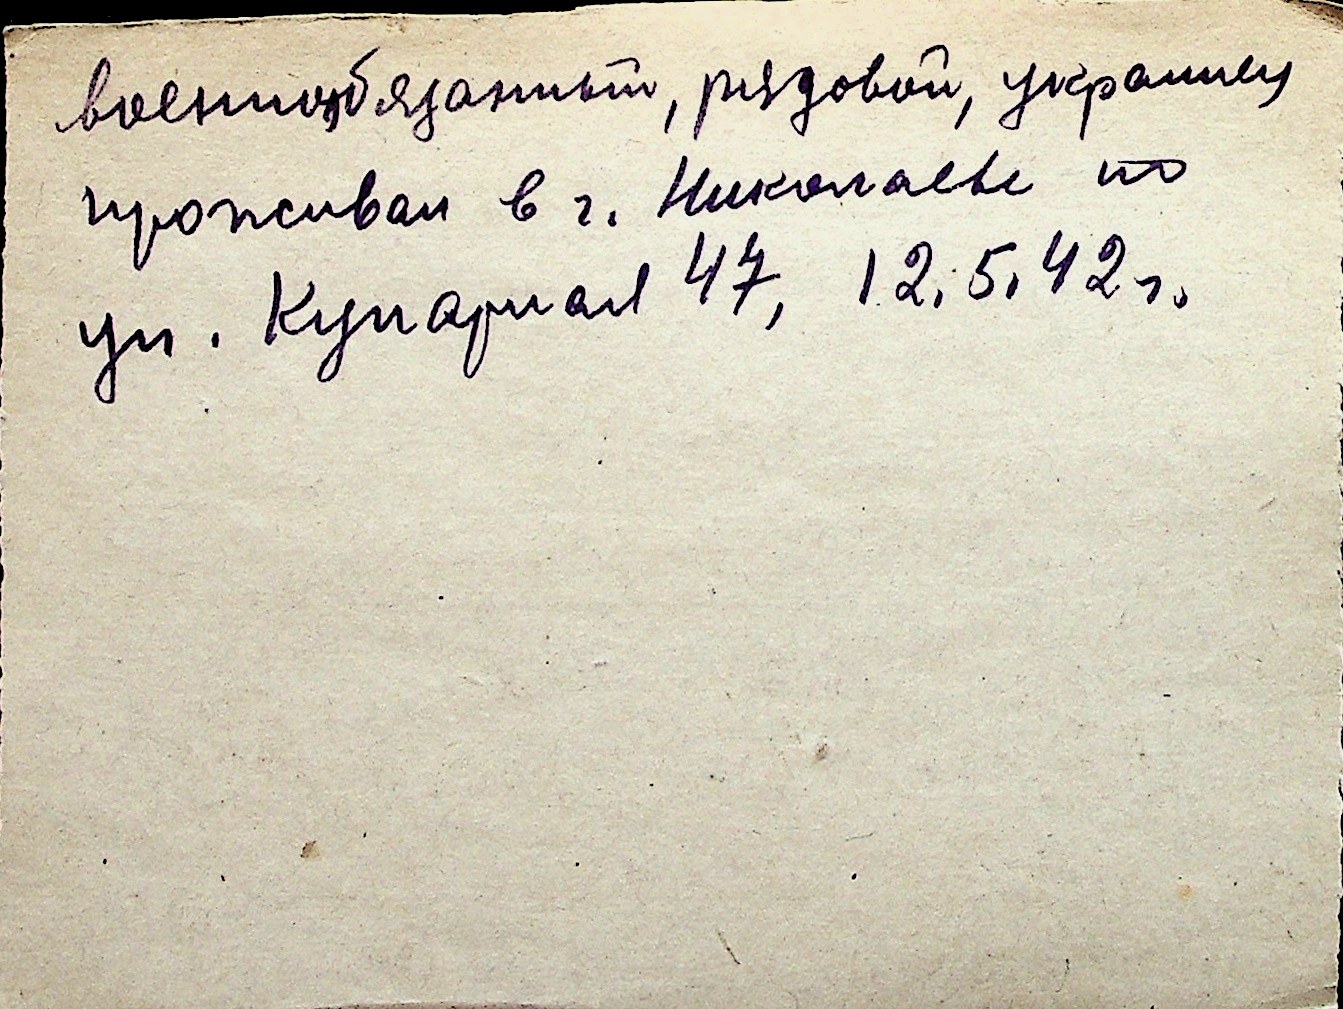 военнообязанный, рядовой, украинец
проживал в г. Николаеве по
ул. Купарная 47, 12.5.42 г.